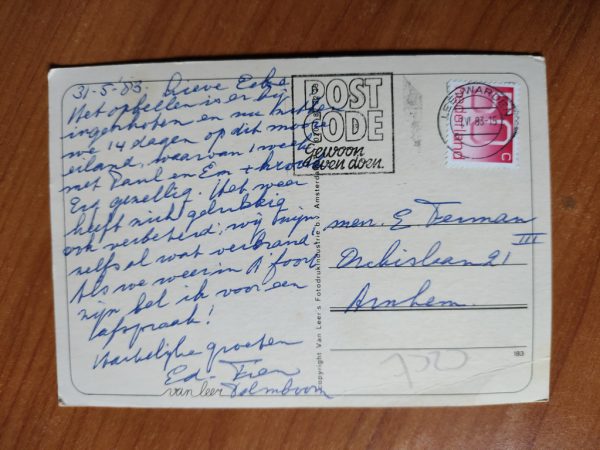 31-5-'83 Lieve
Het opbellen is er bij
ingeschoten en nu zitten
we 14 dagen op dit mooie
eiland, waarvan 1 week
met Paul en Em +
Erg gezellig. Het weer
heeft zich gelukkig
ook verbeterd; wij zijn
zelfs al wat verbrand.
Als we weer in A'foort
zijn bel ik voor een
afspraak!
Hartelijke groeten
Ed - Fien
van leer
POST
CODE
Gewoon
even doen.
LEEUWARDEN
VI. 83-15
nederland
c
Copyright Van Leer's Fotodrukindustrie b.v. Amsterdam
mevr. E
III
21
Arnhem
183